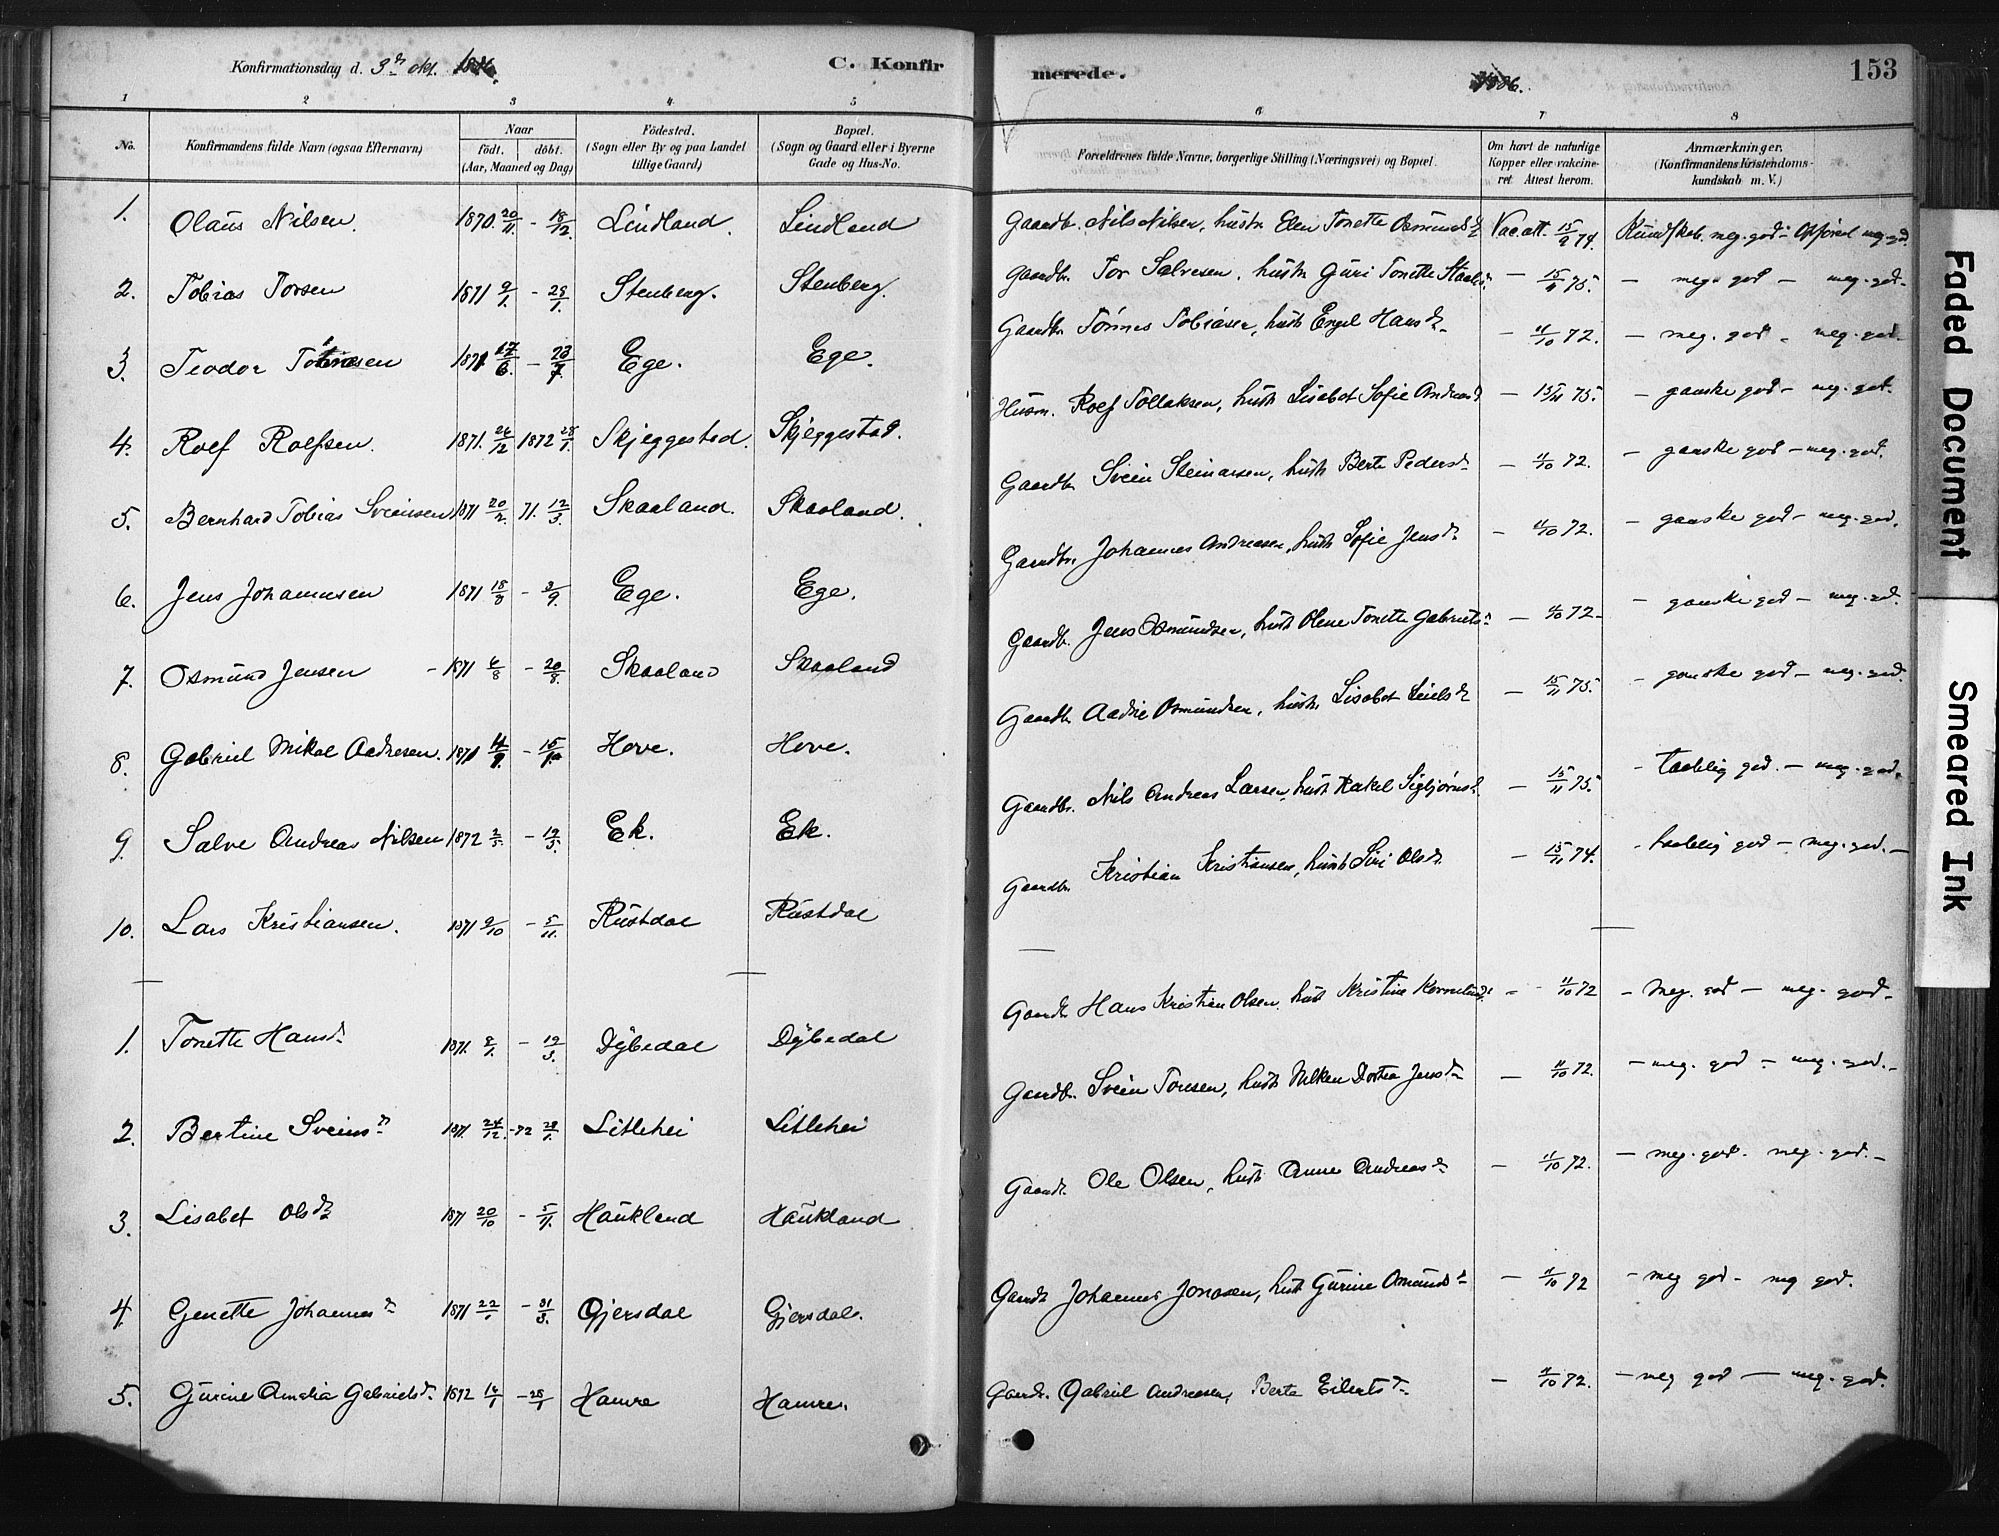 Konfirmationsdag d. 3die okt. 1886. C. Konfirmerede. 1886. 153
1 2 3 4 5 6 7 8
No. Konfirmandens fulde Navn (ogsaa Efternavn) Naar født. døbt. (Aar, Maaned og Dag) Fødested. (Sogn eller By og paa Landet tillige Gaard) Bopæl. (Sogn og Gaard eller i Byerne Gade og Hus-No. Forældrenes fulde Navne, borgerlige Stilling (Næringsvei) og Bopæl. Om havt de naturlige Kopper eller vakcineret Attest herom. Anmærkninger. (Konfirmandens Kristendomskundskab m. V.)
1. Olaus Nilsen. 1870 20/11. - 18/12. Lindland. Lindland Gaardb. Nils Nilsen, hustr. Elen Tonette Osmundsd. Vac. att. 15/9 74. Kundskab. meg. god - Opførsel meg. god.
2. Tobias Torsen 1871 9/1. - 28/1. Stenberg. Stenberg. Gaardb. Tor Salvesen, hustr. Guri Tonette - 15/11 75. - meg. god - meg. god.
3. Teodor 1871 17/6. - 23/7. Ege. Ege. Gaardb. Tønnes Tobiasen, hustr. Engel Hansd. - 11/10 72. - meg. god - meg. god.
4. Rolf Rolfsen. 1871. 26/12 1872 28/1. Skjeggestad. Skjeggestad. Husm. Rolf Tollaksen, hustr. Lisabet Sofie Andreasd - 15/11 75. - ganske god - meg. god.
5. Bernhard Tobias Sveinsen 1871 20/2. 71. 12/3. Skaaland. Skaaland. Gaardb. Svein Steinarsen, hustr. Berte Pedersd. - 11/10 72. - ganske god - meg. god.
6. Jens Johannesen 1871 18/8 - 3/9. Ege. Ege. Gaardb. Johannes Andreasen, hustr. Sofie Jensd. - 11/10 72. - ganske god - meg. god.
7. Osmund Jensen - 1871 6/8 - 20/8. Skaaland Skaaland Gaardb. Jens Osmundsen, hustr. Olene Tonette Gabrielsd. - 11/10 72 - - ganske god - meg. god.
8. Gabriel Mikal Aadnesen. 1871 11/9. - 15/10 Hove. Hove. Gaardb. Aadne Osmundsen, hustr. Lisabet - 15/11 75. - ganske god - meg. god.
9. Salve Andreas Nilsen 1872 2/3. - 12/3. Ek. Ek. Gaardb. Nils Andreas Larsen, hustr. Rakel Sigbjørnsd. - 15/11 75. - taalelig god. - meg. god.
10. Lars Kristiansen. 1871 9/10 - 5/11. Rustdal Rustdal Gaardb. Kristian Kristiansen, hustr. Siri Olsd. - 15/11 74. - taalelig god - meg. god. -
1. Tonette Hansd. 1871. 8/1. - 12/3. Dybedal Dybedal Gaardb. Hans Kristian Olsen, hust Kristine - 11/10 72 - meg. god - meg. god -
2. Bertine Sveinsd. 1871. 24/12. - 72 28/1. Litlehei Litlehei Gaardb. Svein Tonsen, hustr. Dortea Jensd. - 11/10 72. - meg. god - meg. god. -
3. Lisabet Olsd. 1871 20/10 - 5/11. Haukland Haukland Gaardb. Ole Olsen, hustr. Anne Andreasd. - 11/10 72. - meg. god. meg. god. -
4. Genette Johannesd. 1871 22/1 - 31/3. Gjersdal Gjersdal. Gaardb. Johannes Jonasen, hust Gurine Osmundsd. - 11/10 72 - meg god - meg god.
5. Gurine Amalia Gabrielsd. 1872 14/1 - 28/1 Hamre Hamre. Gaardb. Gabriel Andreasen, Berte Eilertsd. - 11/10 72. - meg god - meg. god.
Faded Document
Smeared Ink